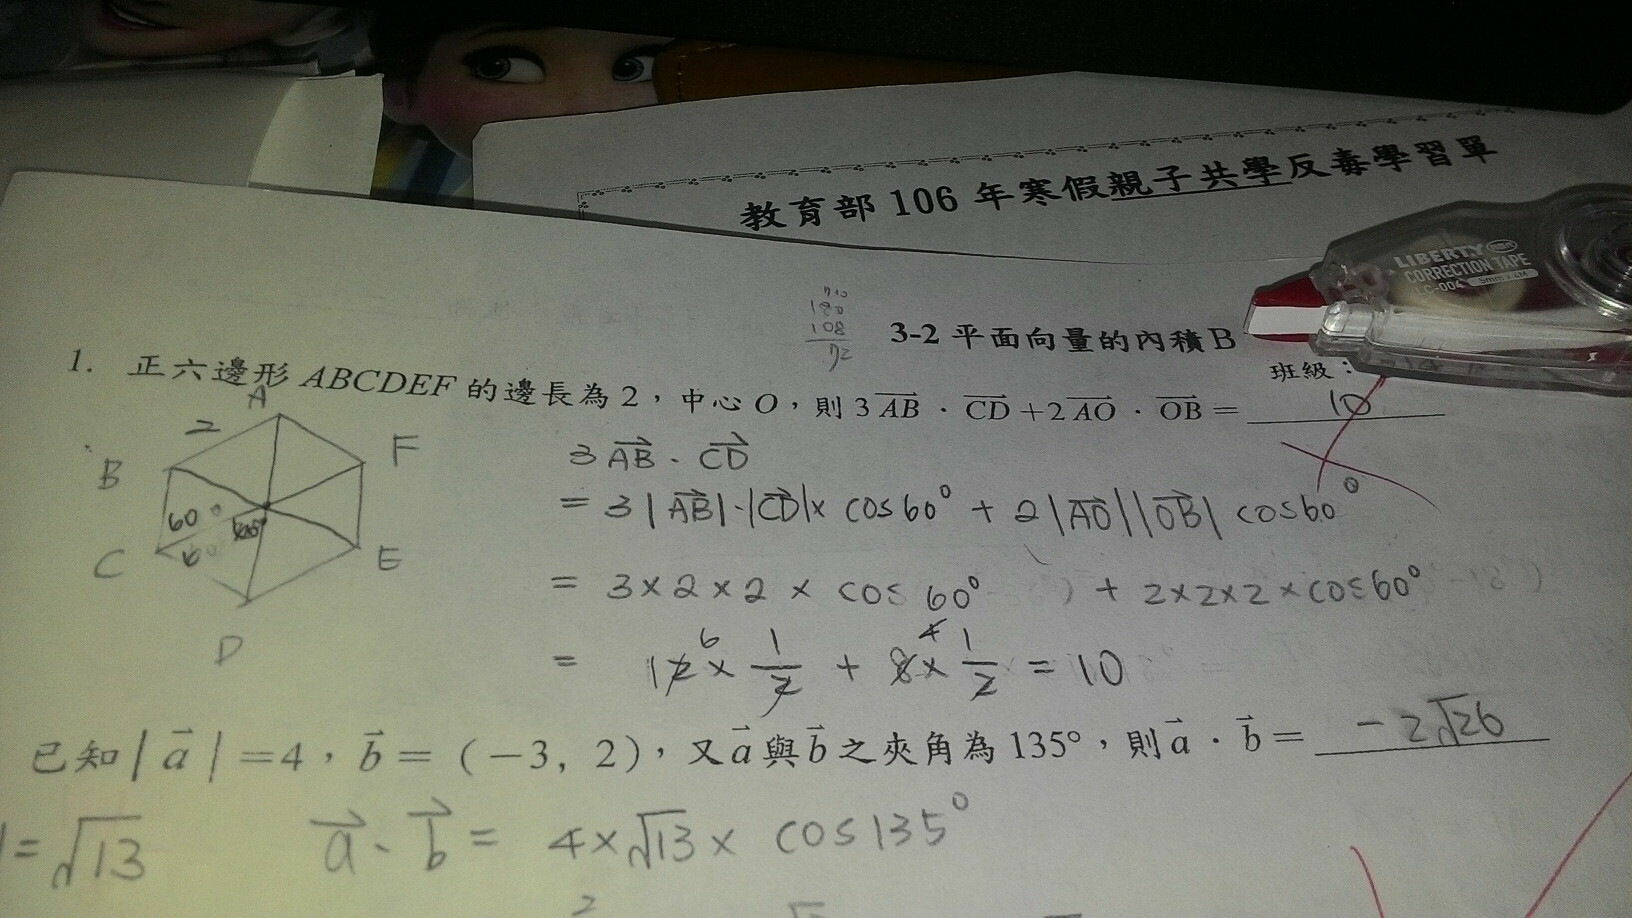 教育部 106 年寒假親子共學反毒學習單
LIBERTY
CORRECTION TAPE
LC-004 5mm x 6M
710
180
108
72
3-2 平面向量的內積B
班級：
1. 正六邊形 ABCDEF 的邊長為 2，中心 O，則 3AB · CD + 2AO · OB = 10
A
2
B
F
60°
60°
60°
C
E
D
3 AB · CD
= 3|AB|·|CD|× cos60° + 2|AO||OB| cos60°
= 3×2×2 × cos 60° + 2×2×2×cos60°
= 12 6 × 1/2 + 8 4 × 1/2 = 10
已知 | a | = 4，b = (−3, 2)，又 a 與 b 之夾角為 135°，則 a · b = -2√26
| = √13 a · b = 4×√13× cos135°
2